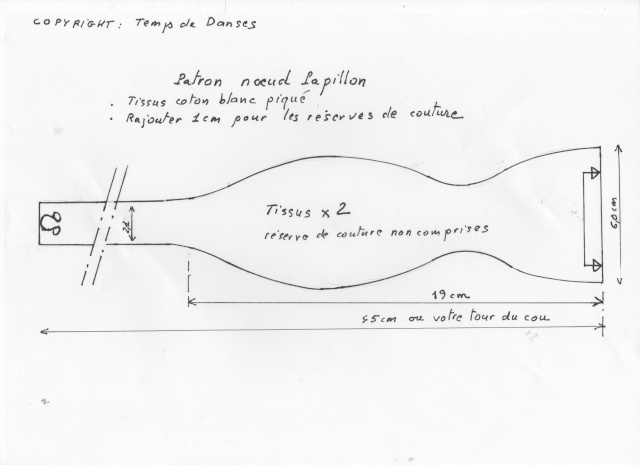 COPYRIGHT: Temps de Danses
Patron nœud Papillon
• Tissus coton blanc piqué
• Rajouter 1cm pour les réserves de couture
Tissus x 2
réserve de couture non comprises
6,0cm
19cm
45cm ou votre tour du cou